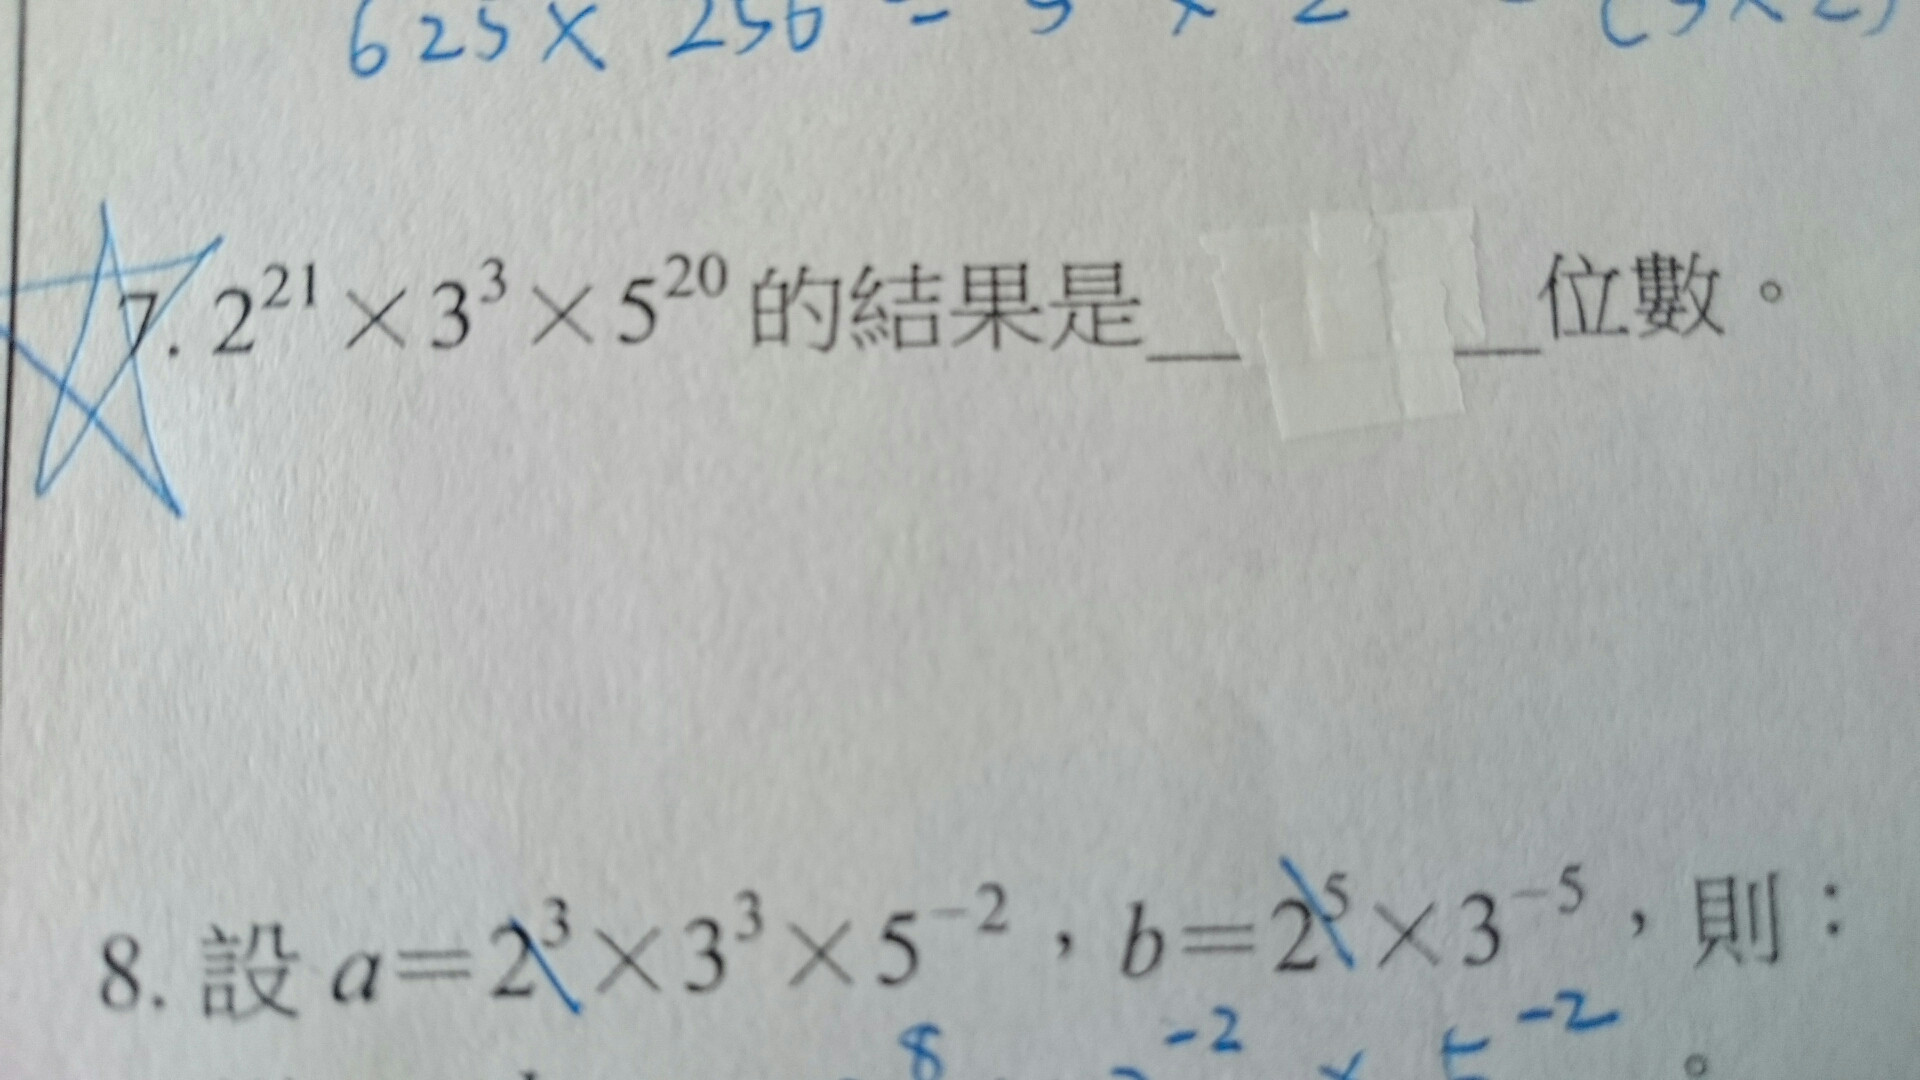 625 × 256 = 5 × 2 = (5×2)
7. 2²¹ × 3³ × 5²⁰ 的結果是__ __位數。
8. 設 a=2³×3³×5⁻²，b=2⁵×3⁻⁵，則：
8 -2 × 5⁻²